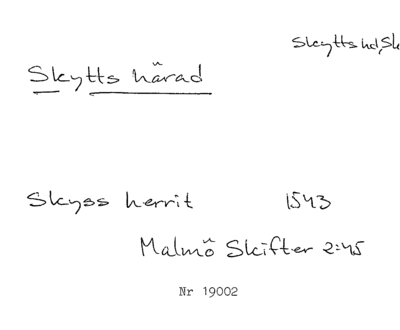 Skytts hd, Sk
Skytts härad
Skyss herrit 1543
Malmö Skifter 2:45
Nr 19002